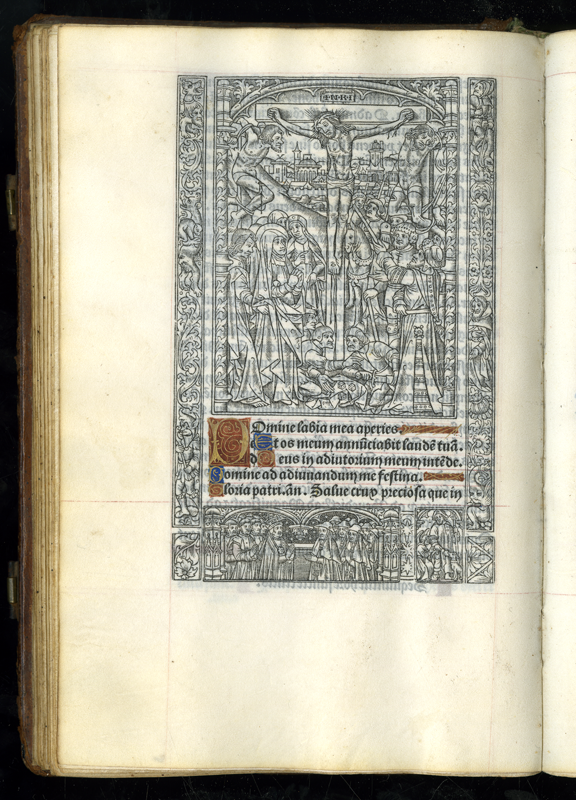 INRI
Domine labia mea aperies.
Et os meum annūciabit laudē tuā.
Deus in adiutorium meum intēde.
Domine ad adiuuandum me festina.
Gloria patri. añ. Salue crux preciosa que in